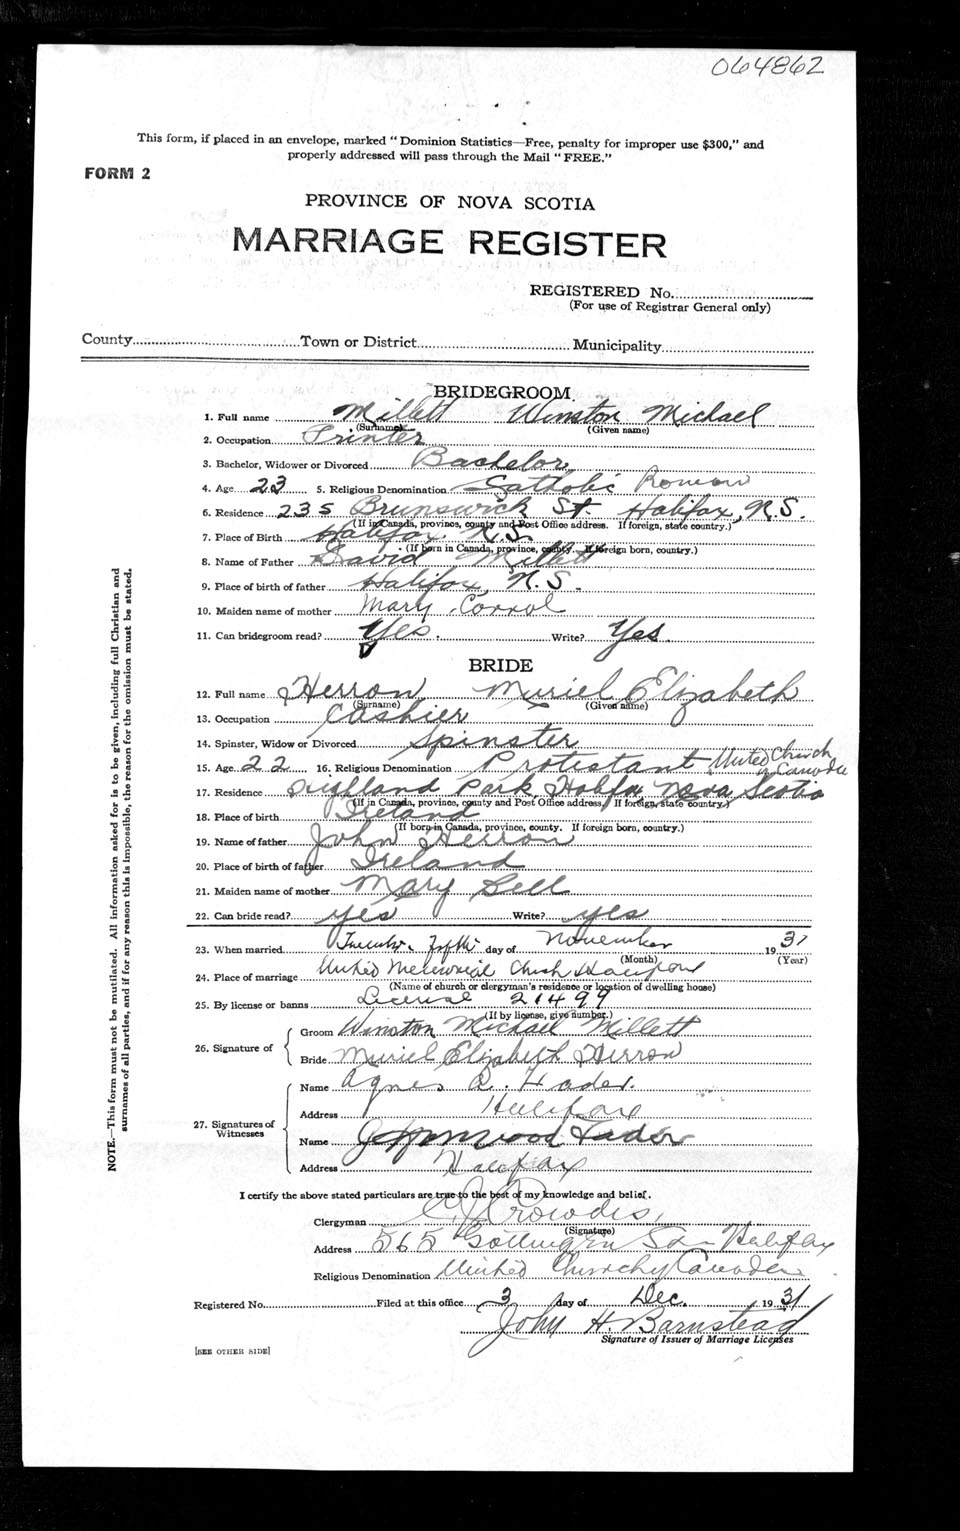 064862
This form, if placed in an envelope, marked "Dominion Statistics—Free, penalty for improper use $300," and
properly addressed will pass through the Mail "FREE."
FORM 2
PROVINCE OF NOVA SCOTIA
MARRIAGE REGISTER
REGISTERED No.
(For use of Registrar General only)
County Town or District Municipality
BRIDEGROOM
1. Full name Millett Winston Michael
(Surname) (Given name)
2. Occupation Printer
3. Bachelor, Widower or Divorced Bachelor
4. Age 23 5. Religious Denomination Catholic Roman
6. Residence 235 Brunswick St. Halifax, N.S.
(If in Canada, province, county and Post Office address. If foreign, state country.)
7. Place of Birth Halifax N.S.
(If born in Canada, province, county. If foreign born, country.)
8. Name of Father David Millett
9. Place of birth of father Halifax, N.S.
10. Maiden name of mother Mary Corrol
11. Can bridegroom read? Yes. Write? Yes.
BRIDE
12. Full name Herron Muriel Elizabeth
(Surname) (Given name)
13. Occupation Cashier
14. Spinster, Widow or Divorced Spinster
15. Age 22 16. Religious Denomination Protestant United Church of Canada
17. Residence Highland Park Halifax Nova Scotia
(If in Canada, province, county and Post Office address. If foreign, state country.)
18. Place of birth Ireland
(If born in Canada, province, county. If foreign born, country.)
19. Name of father John Herron
20. Place of birth of father Ireland
21. Maiden name of mother Mary Bell
22. Can bride read? yes Write? yes
23. When married Twenty Fifth day of November 1931
(Month) (Year)
24. Place of marriage United Memorial Church Halifax
(Name of church or clergyman's residence or location of dwelling house)
25. By license or banns License 21499
(If by license, give number.)
26. Signature of Groom Winston Michael Millett
Bride Muriel Elizabeth Herron
27. Signatures of Witnesses
Name Agnes A. Hader.
Address Halifax
Name Lader
Address Halifax
I certify the above stated particulars are true to the best of my knowledge and belief.
Clergyman C. J. Crowdis,
(Signature)
Address 565 Gottingen St Halifax
Religious Denomination United Church of Canada
Registered No. Filed at this office 3 day of Dec. 1931
John H. Barnstead
Signature of Issuer of Marriage Licenses
[SEE OTHER SIDE]
NOTE.—This form must not be mutilated. All information asked for is to be given, including full Christian and
surnames of all parties, and if for any reason this is impossible, the reason for the omission must be stated.